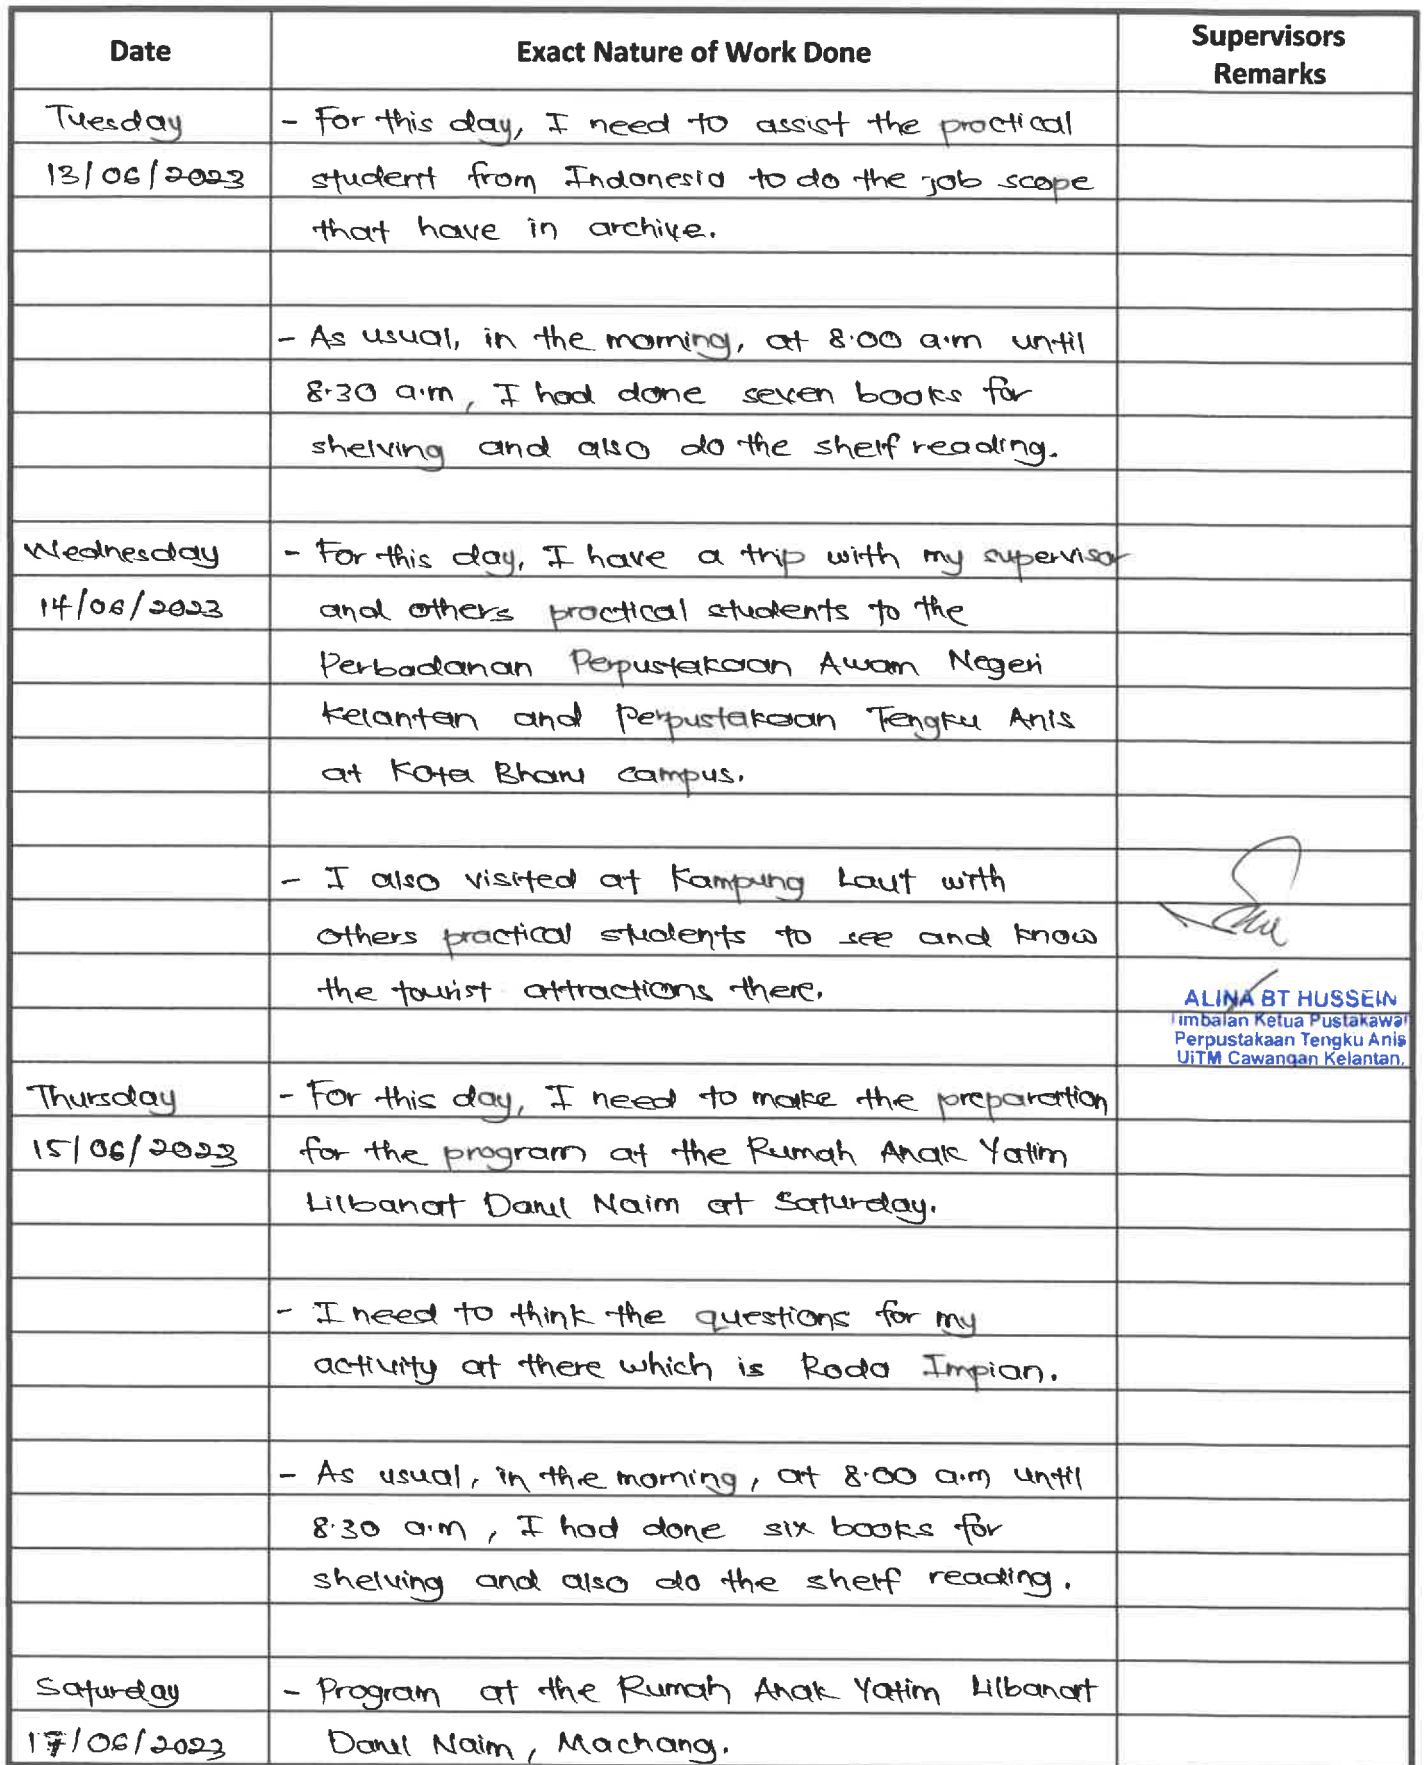 Date Exact Nature of Work Done Supervisors Remarks
Tuesday - For this day, I need to assist the practical
13/06/2023 student from Indonesia to do the job scope
that have in archive.
- As usual, in the morning, at 8.00 a.m until
8.30 a.m, I had done seven books for
shelving and also do the shelf reading.
Wednesday - For this day, I have a trip with my supervisor
14/06/2023 and others practical students to the
Perbadanan Perpustakaan Awam Negeri
Kelantan and Perpustakaan Tengku Anis
at Kota Bharu campus.
- I also visited at Kampung Laut with
others practical students to see and know
the tourist attractions there.
ALINA BT HUSSEIN
Timbalan Ketua Pustakawan
Perpustakaan Tengku Anis
UiTM Cawangan Kelantan.
Thursday - For this day, I need to make the preparation
15/06/2023 for the program at the Rumah Anak Yatim
Lilbanat Darul Naim at Saturday.
- I need to think the questions for my
activity at there which is Roda Impian.
- As usual, in the morning, at 8.00 a.m until
8.30 a.m, I had done six books for
shelving and also do the shelf reading.
Saturday - Program at the Rumah Anak Yatim Lilbanat
17/06/2023 Darul Naim, Machang.